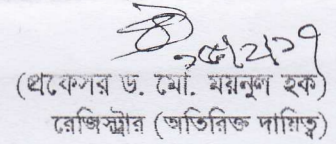 ২৫/২/১৭
(প্রফেসর ড. মো. ময়নুল হক)
রেজিস্ট্রার (অতিরিক্ত দায়িত্ব)